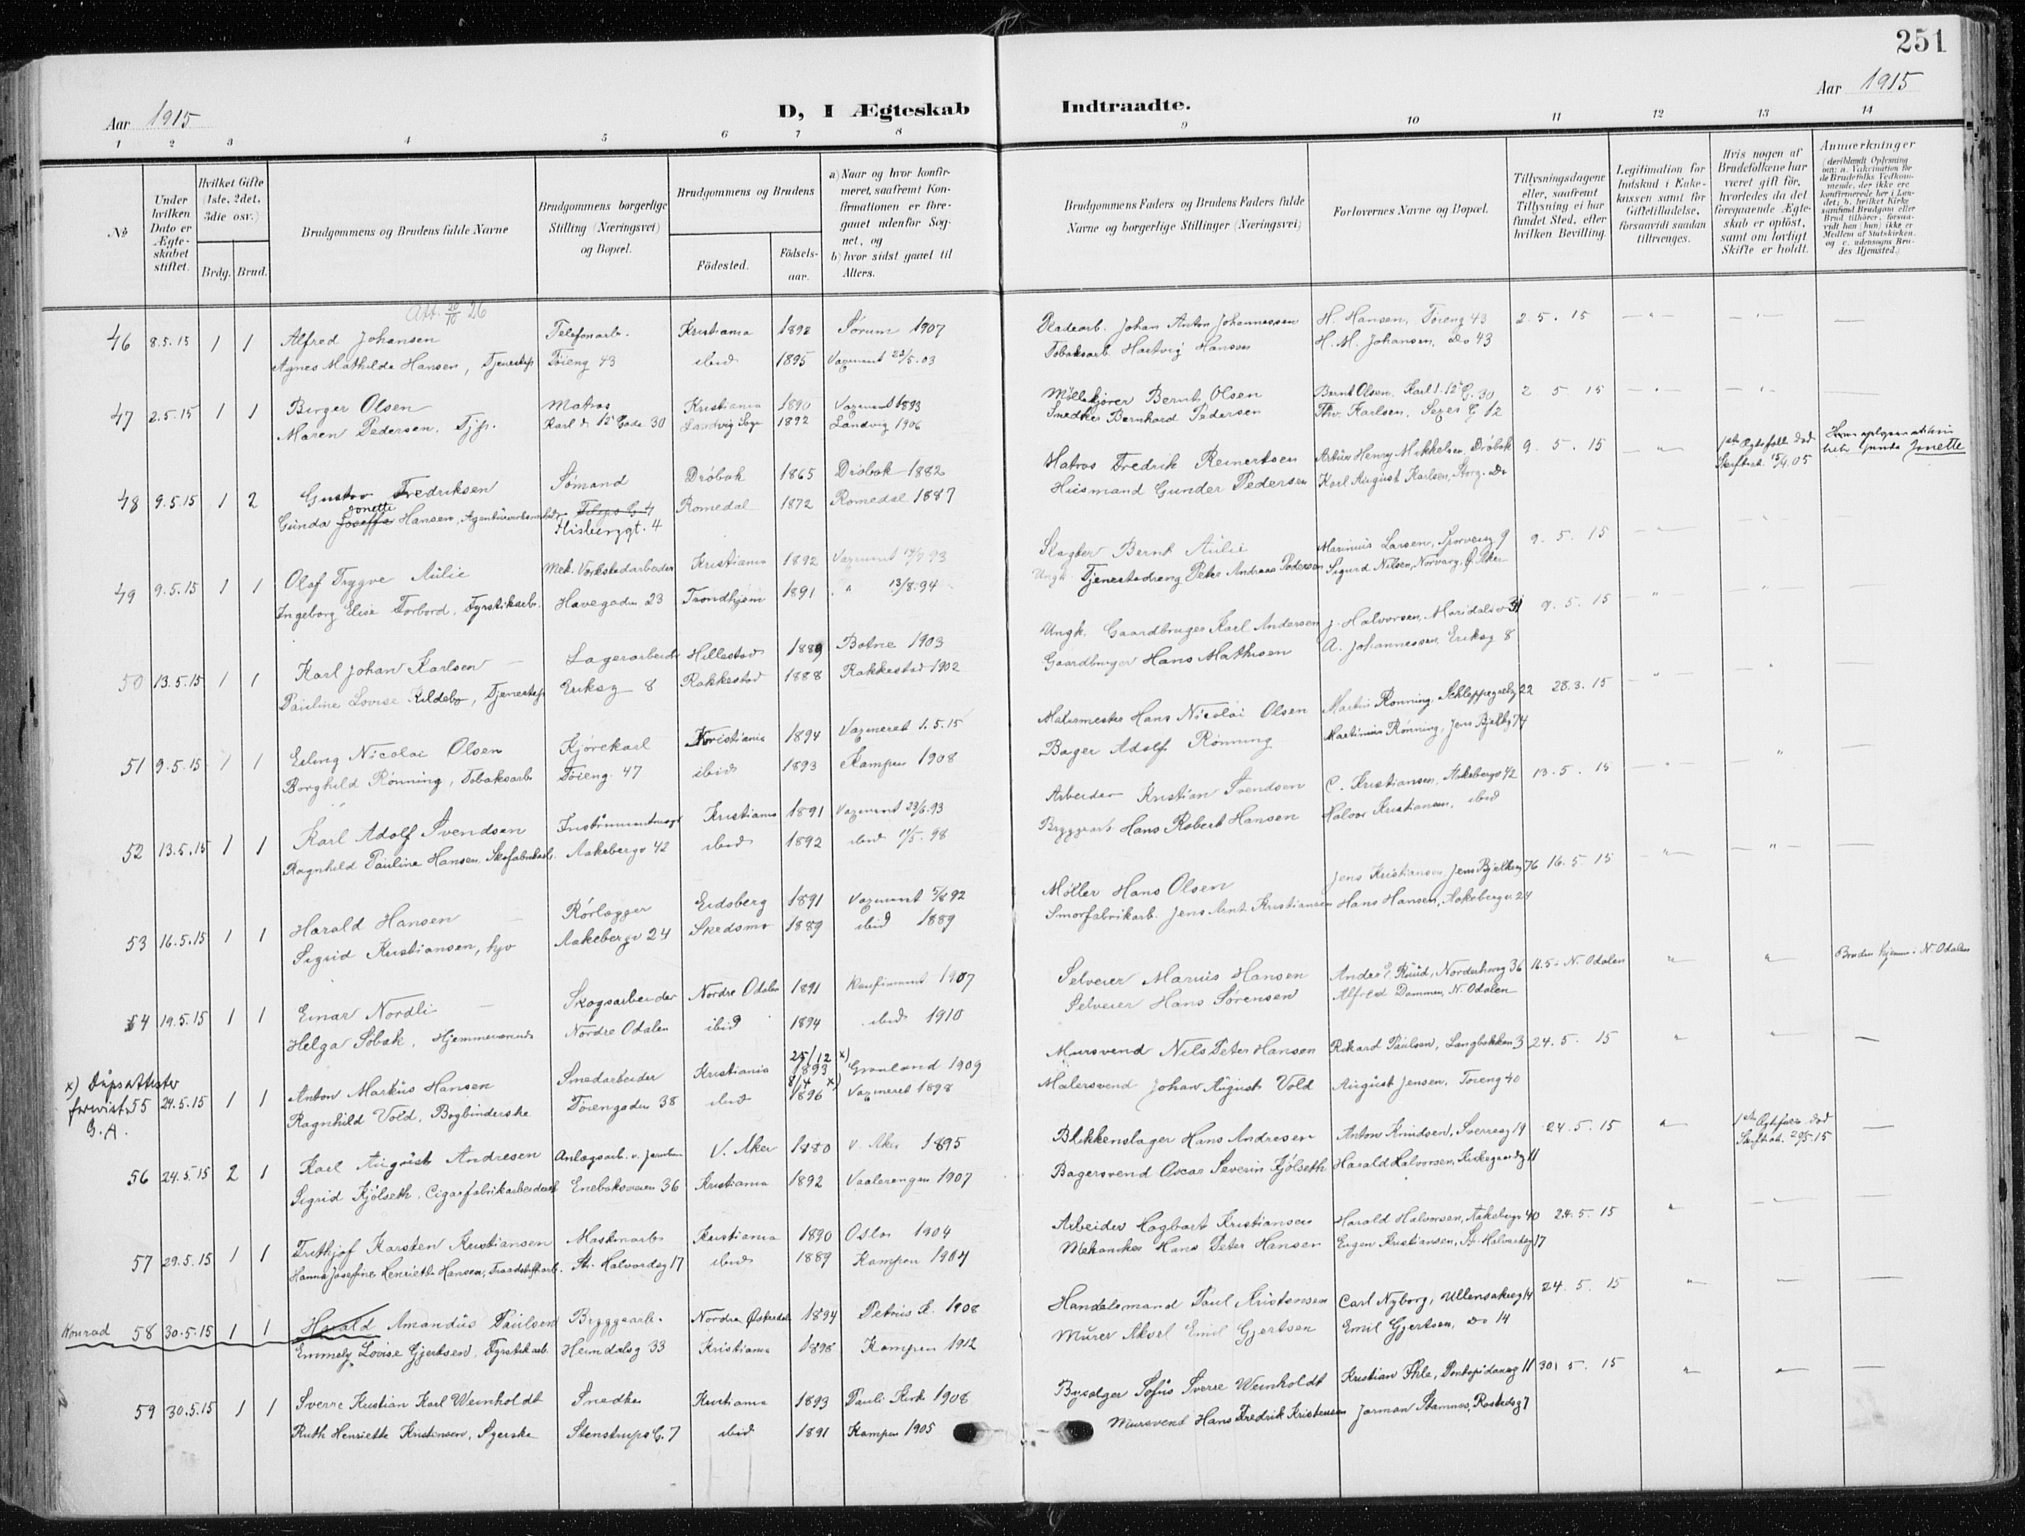 251
Aar 1915
D, I Ægteskab Indtraadte.
Aar 1915
1 2 3 4 5 6 7 8 9 10 11 12 13 14
No
Under hvilken Dato er Ægteskabet stiftet.
Hvilket Gifte (1ste, 2det, 3die osv.)
Brdg. Brud.
Brudgommens og Brudens fulde Navne
Brudgommens borgerlige Stilling (Næringsvei) og Bopæl.
Brudgommens og Brudens
Fødested.
Fødselsaar.
a) Naar og hvor konfirmeret, saafremt Konfirmationen er foregaaet udenfor Sognet, og
b) hvor sidst gaaet til Alters.
Brudgommens Faders og Brudens Faders fulde Navne og borgerlige Stillinger (Næringsvei)
Forlovernes Navne og Bopæl.
Tillysningsdagene eller, saafremt Tillysning ei har fundet Sted, efter hvilken Bevilling.
Legitimation for Indskud i Enkekassen samt for Giftetilladelse, forsaavidt saadan tiltrænges.
Hvis nogen af Brudefolkene har været gift før, hvorledes da det foregaaende Ægteskab er opløst, samt om lovligt Skifte er holdt.
Anmærkninger (deriblandt Oplysning om: a. Vakcination for de Brudefolks Vedkommende, der ikke ere konfirmerede her i Landet; b. hvilket Kirkesamfund Brudgom eller Brud tilhører, forsaavidt han (hun) ikke er Medlem af Statskirken, og c. udensogns Brudes Hjemsted.)
Att. 20/10 26
46 8.5.15 1 1 Alfred Johansen Telefonarb. Kristiania 1892 Sørum 1907 Johan Anton Johannessen H. Hansen, Tøieng 43 2.5.15
Agnes Mathilde Hansen, Tjenestep. Tøieng 43 ibid 1895 Vaxineret 22/5.03 Tobaksarb. Hartvig Hansen H. M. Johansen, Do 43
47 2.5.15 1 1 Birger Olsen Matros Kristiania 1890 Vaxineret 1893 Møllekjører Bernt Olsen Bernt Olsen, Karl d. 12 G. 30 2 5. 15
Maren Pedersen, Tjp. Karl d. 12 Gade 30 Landvig Sogn 1892 Landvig 1906 Snedker Bernhard Pedersen Thv. Karlsen, G. 12
48 9.5.15 1 2 Gustav Fredriksen Sømand Drøbak 1865 Drøbak 1882 Matros Fredrik Reinertsen Artur Henry Mikkelsen, Drøbak 9. 5. 15 1ste Ægtefælle død
Jonette
Gunda Joseffa Hansen, Romedal 1872 Romedal 1887 Husmand Gunder Pedersen Karl August Karlsen, Storg. Do Skifteat. 15/4.05 Gunda Jonette
Hisbenzgt. 4
49 9.5.15 1 1 Olaf Tryggve Aulie Mek. Værkstedarbeider Kristiania 1892 Vaxineret 93 Slagter Bernt Aulie Marinius Larsen, 9 9. 5. 15
Ingeborg Elise Torbord, Fyrstikarb. Havegaden 23 Trondhjem 1891 " 13/8.94 Ungk. Tjenestedreng Peter Andreas Pedersen Sigurd Nilsen, Norvarg. Ø. Aker
50 13.5.15 1 1 Karl Johan Karlsen Lagerarbeider Hillestad 1889 Botne 1903 Ungk. Gaardbruger Karl Andersen J. Halvorsen, Maridalsv 31 9. 5. 15
Pauline Lovise Kildebo, Tjenestep. Eriksg 8 Rakkestad 1888 Rakkestad 1902 Gaardbruger Hans Mathisen A. Johannessen, Eriksg 8
51 9.5.15 1 1 Erling Nicolai Olsen Kjørekarl Kristiania 1894 Vaxineret 1.5.15 Malermester Hans Nicolai Olsen Martin Rønning, Schleppegrelsg 22 28.3. 15
Borghild Rønning, Tobaksarb Tøieng. 47 ibid 1893 Kampen 1908 Bager Adolf Rønning Martinius Rønning, Jens Bjelkg 74
52 13.5.15 1 1 Karl Adolf Svendsen Instrumentmag. Kristiania 1891 Vaxineret 23/6.93 Arbeider Kristian Svendsen C. Kristiansen, Aakebergv 42 13. 5. 15
Ragnhild Pauline Hansen, Skofabrikarb. Aakebergv 42 ibid 1892 ibid 98 Bryggearb Hans Robert Hansen Halvor Kristiansen, ibid
53 16.5.15 1 1 Harald Hansen Rørlægger Eidsberg 1891 Vaxineret 92 Møller Hans Olsen Jens Kristiansen, Jens Bjelkesg 76 16. 5. 15
Sigrid Kristiansen, hjv Aakebergv 24 Skedsmo 1889 ibid 1889 Smørfabrikarb. Jens Arnt Kristiansen Hans Hansen, Aakebergv. 24
54 19.5.15 1 1 Einar Nordli Skogsarbeider Nordre Odalen 1891 Konfirmeret 1907 Selveier Marius Hansen Andr. E. Ruud, Norderhovg 36 16.5. N. Odalen Bruden hjemme i N. Odalen
Helga Søbak, Hjemmeværende Nordre Odalen ibid 1894 ibid 1910 Selveier Hans Sørensen Alfred Dammen, N. Odalen
x) Dåpsattester
forevist.
G.A.
55 24.5.15 1 1 Anton Markus Hansen Smedarbeider Kristiania 25/12 1893 x) Grønland 1909 Mursvend Nils Peter Hansen Rikard Paulsen, Langbakken 3 24. 5. 15
Ragnhild Vold, Bogbinderske Tøiengaden 38 ibid 8/4 1896 x) Vaxineret 1898 Malersvend Johan August Vold August Jensen, Tøieng 40
56 24.5.15 2 1 Karl August Andresen Anlægsarb. v. V. Aker 1880 V. Aker 1895 Blikkenslager Hans Andresen Anton Knudsen, Sverresg 19 24. 5. 15 1ste Ægtefælle død
Sigrid Kjølseth, Cigarfabrikarbeiderske Enebakveien 36 Kristiania 1892 Vaalerengen 1907 Bagersvend Oscar Severin Kjølseth Harald Halvorsen, Kirkegaardsg 11
57 29.5.15 1 1 Frithjof Karsten Kristiansen Maskinarb Kristiania 1890 Oslo 1904 Arbeider Hagbart Kristiansen Harald Halvorsen, Aakebergv 40 24. 5. 15
Hanna Josefine Henriette Hansen, St. Halvardsg 17 ibid 1889 Kampen 1904 Mekaniker Hans Peter Hansen Eugen Kristiansen, St. Halvardsg 17
Konrad 58 30.5.15 1 1 Harald Amandus Paulsen Bryggearb. Nordre Østredalen 1894 Petrus K. 1908 Handelsmand Paul Kristensen Carl Nyborg, Ullensakerg 14 24. 5. 15
Emmely Lovise Gjertsen, Fyrstikarb Heimdalsg 33 Kristiania 1898 Kampen 1912 Murer Aksel Emil Gjertsen Emil Gjertsen, Do 14
59 30.5.15 1 1 Sverre Kristian Karl Weinholdt Smedker Kristiania 1893 Pauli Kirk 1908 Sofus Sverre Weinholdt Kristian Ihle, Pontopidansg 11 30. 5. 15
Ruth Henriette Kristensen, Syerske Stenstrups G. 7 ibid 1891 Kampen 1905 Mursvend Hans Fredrik Kristensen Jarman Stamnes, Rostedsg 7